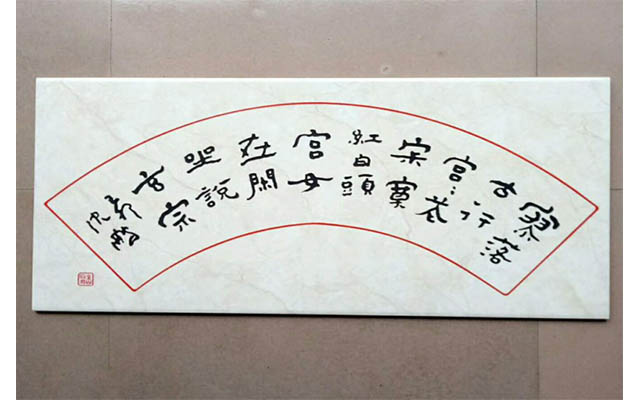 寥落
古行
宫〻花
寂寞
紅白頭
宫女
在閑
坐說
玄宗